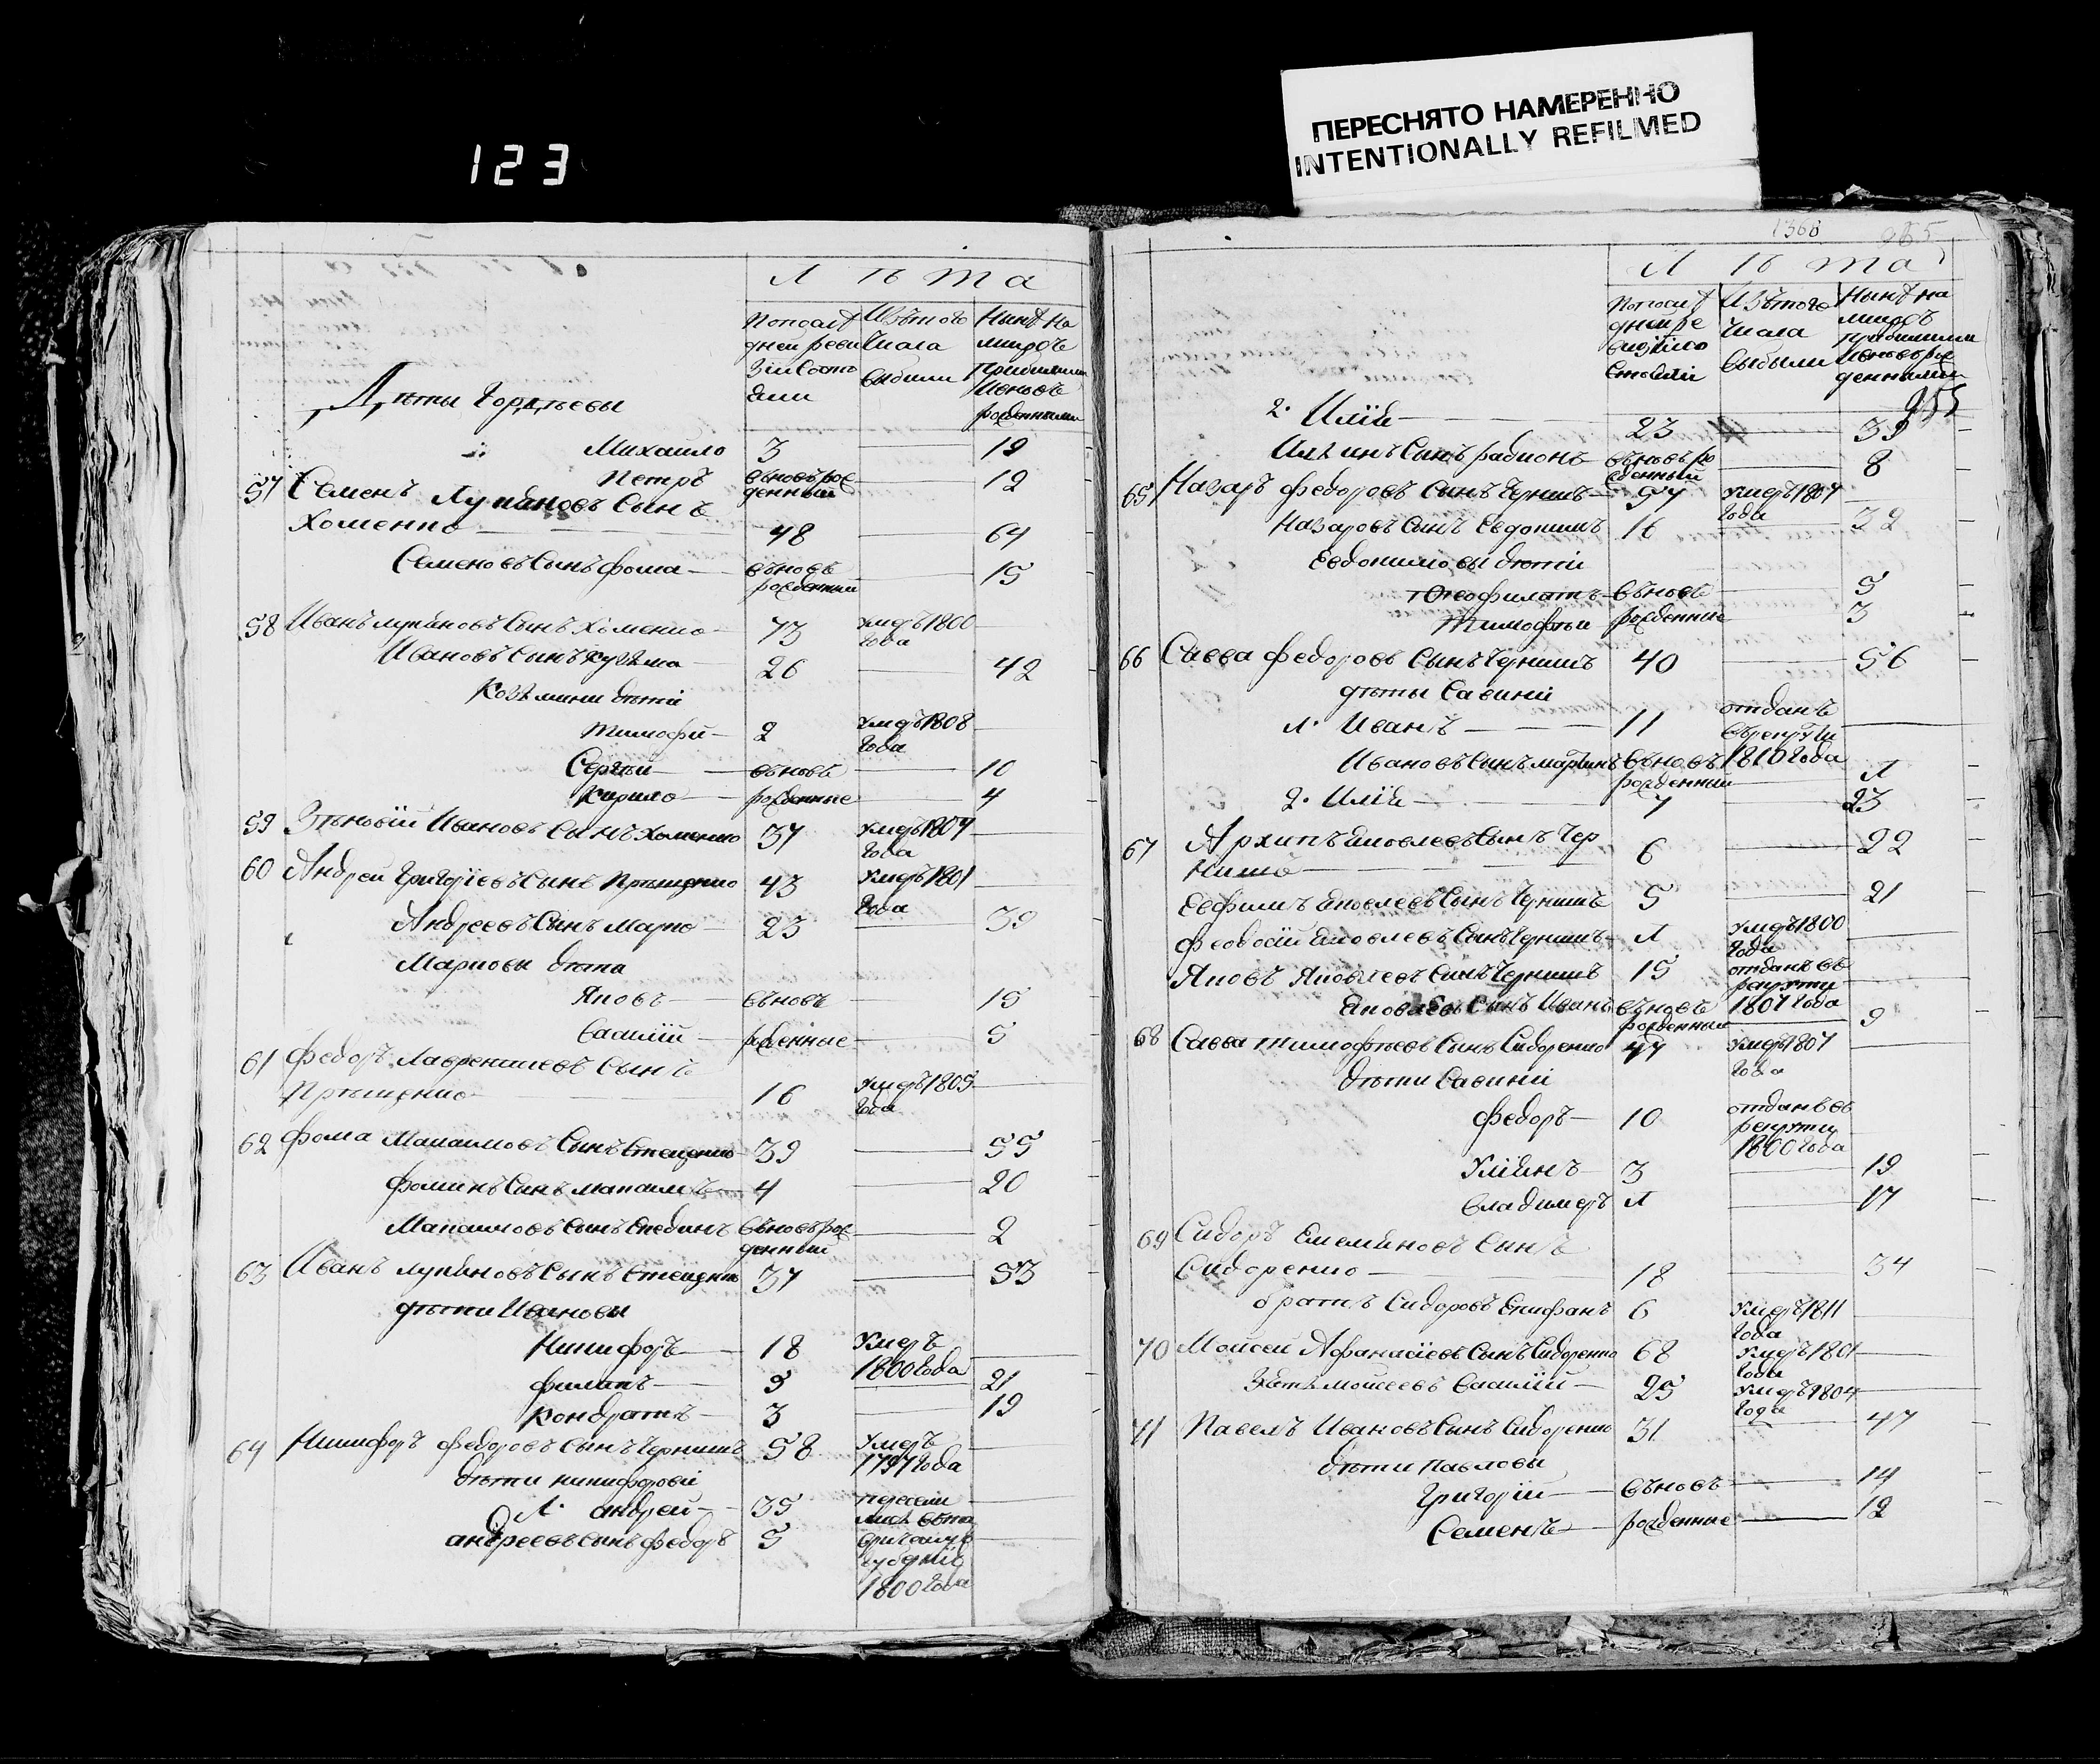 123
ПЕРЕСНЯТО НАМЕРЕННО
INTENTIONALLY REFILMED
Лѣта
По последней ревизіи состояли
Изъ того числа выбыли
Ныне на лицо съ прибылыми и вновь рожденными
Дѣти Гордѣевы
Михайло 3 — 19
Петръ вновь рожденный — 12
57 Семенъ Лукяновъ Сынъ
Хоменко — 48 — 64
Семеновъ Сынъ Фома — вновь рожденный — 15
58 Иванъ Лукяновъ Сынъ Хоменко — 73 умеръ 1800 года —
Ивановъ Сынъ Кузма — 26 — 42
Козмини дѣти
Тимофей — 2 умеръ 1808 года —
Сергѣй — вновь — 10
Кирило — рожденные — 4
59 Зѣновій Ивановъ Сынъ Хоменко 37 умеръ 1807 года —
60 Андрей Григоріевъ Сынъ 43 умеръ 1801 года —
Андреевъ Сынъ Марко — 23 — 39
Маркови дѣти
Яковъ — вновь — 15
Василій — рожденные — 5
61 Федоръ Лаврентиевъ Сынъ
16 умеръ 1805 года —
62 Фома Максимовъ Сынъ Стеценко 39 — 55
Фоминъ Сынъ Максимъ — 4 — 20
Максимовъ Сынъ вновь рожденный — 2
63 Иванъ Лукяновъ Сынъ Стеценко 37 — 53
дѣти Иванови
Никифоръ — 18 умеръ 1800 года —
Филипъ — 5 — 21
Кондратъ — 3 — 19
64 Никифоръ Федоровъ Сынъ Чернишъ 58 умеръ 1797 года —
дѣти Никифорови
1. Андрей — 35
Андреевъ Сынъ Федоръ 5
губернію
1800 года
1366
955
Лѣта
По последней ревизіи состояли
Изъ того числа выбыли
Ныне на лицо съ прибылыми и вновь рожденными
955
2. Илія — 23 — 39
Илинъ Сынъ Радионъ — вновь рожденный — 8
65 Назаръ Федоровъ Сынъ Чернишъ — 57 умеръ 1807 года —
Назаровъ Сынъ Евдокимъ 16 — 32
Евдокимови дѣти
Феофилатъ — вновь — 5
Тимофѣй рожденние — 3
66 Савва Федоровъ Сынъ Чернишъ 40 — 56
дѣти Савини
1. Иванъ — 11 отданъ въ рекруты 1810 года —
Ивановъ Сынъ Мартинъ вновь рожденний 1
2. Илія — 7 23
67 Архипъ Яковлевъ Сынъ Чернишъ — 6 — 22
Евфимъ Яковлевъ Сынъ Чернишъ 5 — 21
Феодосій Яковлевъ Сынъ Чернишъ — 1 умеръ 1800 года —
Яковъ Яковлевъ Сынъ Чернишъ 15 отданъ въ рекруты 1807 года —
Яковлевъ Сынъ Иванъ вновь рожденный — 9
68 Савва Тимофѣевъ Сынъ Сидоренко 47 умеръ 1807 года —
дѣти Савини
Федоръ — 10 отданъ въ рекруты 1800 года
Уліянъ — 3 — 19
Владимеръ 1 — 17
69 Сидоръ Емеляновъ Сынъ
Сидоренко — 18 — 34
братъ Сидоровъ Епифанъ 6 умеръ 1811 года —
70 Мойсей Афанасіевъ Сынъ Сидоренко 68 умеръ 1801 года —
Зять Мойсеевъ Василій — 25 умеръ 1804 года —
71 Павелъ Ивановъ Сынъ Сидоренко 31 — 47
дѣти Павлови
Григорій — вновь — 14
Семенъ — рожденные — 12